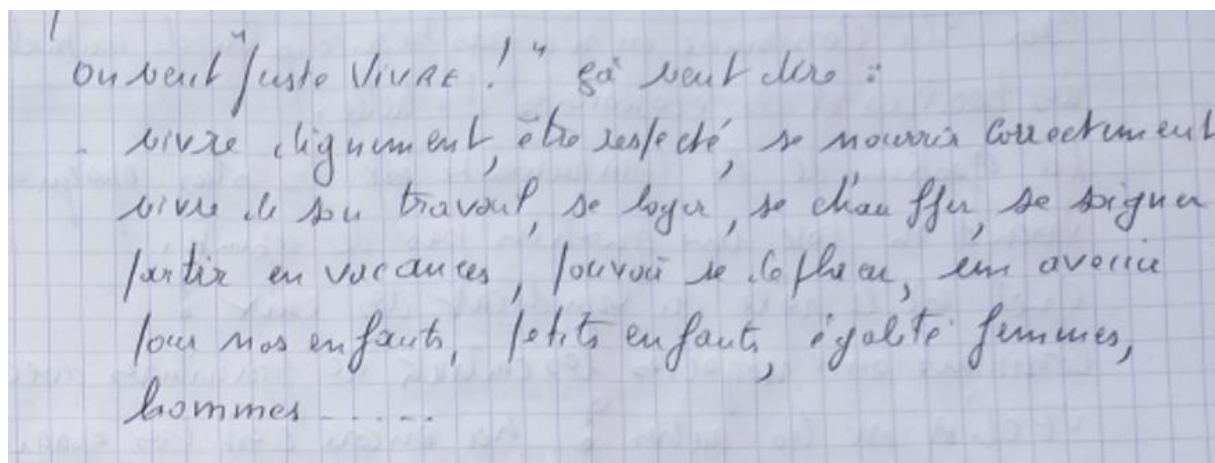 on veut "juste VIVRE ! " ça veut dire :
- vivre dignement, être respecté, se nourrir correctement
vivre de son travail, se loger, se chauffer, se soigner
partir en vacances, pouvoir se déplacer, un avenir
pour nos enfants, petits enfants, égalité femmes,
hommes .....